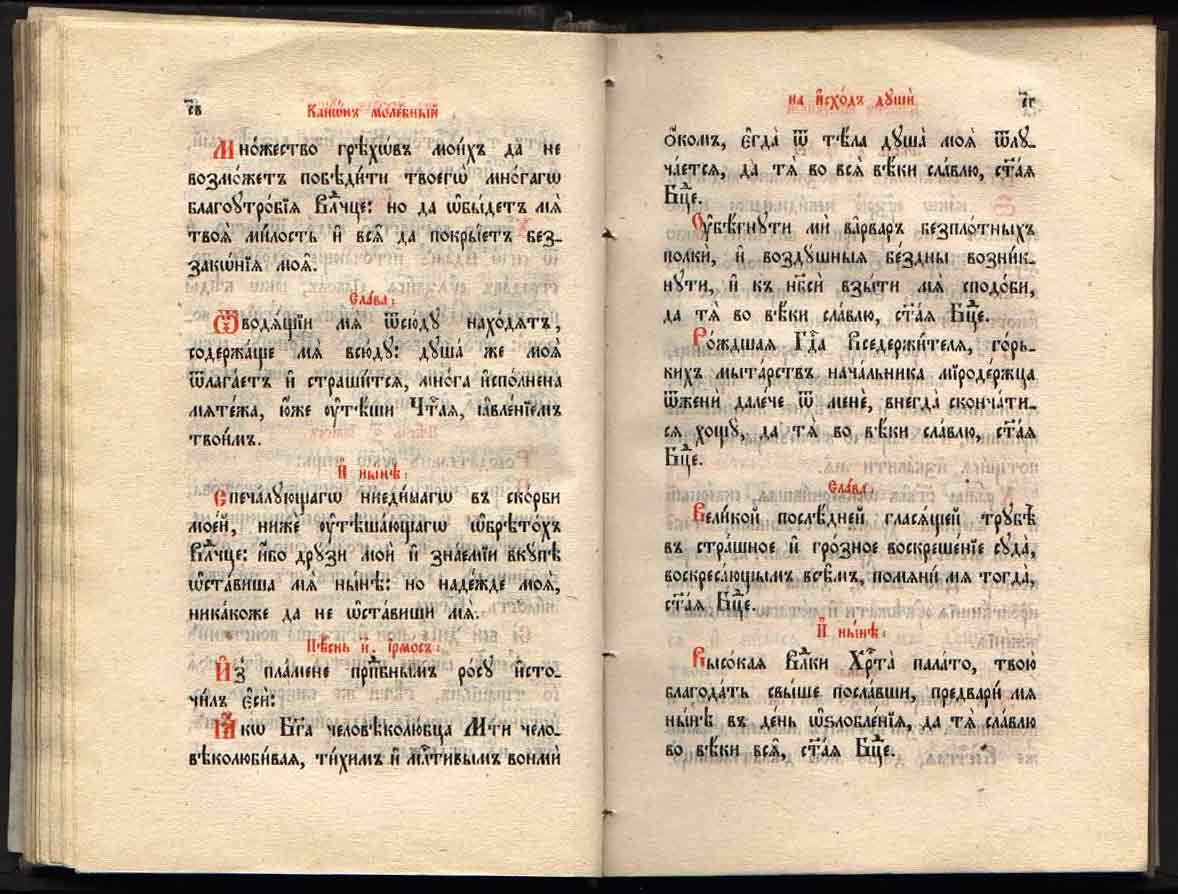 св
Канѡ́нъ моле́бный
Мно́жество грѣхѡ́въ мои́хъ да не
возмо́жетъ побѣди́ти твоегѡ̀ мно́гагѡ
благоꙋтро́бїѧ влⷣчце: но да ѡ҆бы́детъ мѧ̀
твоѧ̀ ми́лость и҆ всѧ̑ да покры́етъ без-
закѡ́нїѧ моѧ̑.
Сла́ва:
Ѿводѧ́щїи мѧ̀ ѿсю́дꙋ нахо́дѧтъ,
содержа́ще мѧ̀ всю́дꙋ: дꙋша́ же моѧ̀
ѿлага́етъ и҆ страши́тсѧ, мно́га и҆спо́лнена
мѧте́жа, ю҆́же ᲂу҆тѣ́ши Чⷭ҇таѧ, ꙗ҆вле́нїемъ
твои́мъ.
И҆ ны́нѣ:
Спечалꙋ́ющагѡ ниеди́нагѡ въ ско́рби
мое́й, нижѐ ᲂу҆тѣша́ющагѡ ѡ҆брѣто́хъ
влⷣчце: и҆́бо дрꙋ́зи мои̑ и҆ зна́емїи вкꙋ́пѣ
ѡ҆ста́виша мѧ̀ ны́нѣ: но наде́жде моѧ̀,
ника́коже да не ѡ҆ста́виши мѧ̀.
Пѣ́снь и҃. і҆рмо́съ:
И҆з̾ пла́мене прпⷣбнымъ ро́сꙋ и҆сто-
чи́лъ є҆сѝ:
Ꙗ҆́кѡ Бг҃а человѣколю́бца Мт҃и чело-
вѣколюби́ваѧ, ти́химъ и҆ млⷭ҇тивымъ воньмѝ
сг
на и҆схо́дъ дꙋшѝ
ѻ҆́комъ, є҆гда̀ ѿ тѣ́ла дꙋша̀ моѧ̀ ѿлꙋ-
ча́етсѧ, да тѧ̀ во всѧ̑ вѣ́ки сла́влю, ст҃а́ѧ
Бцⷣе.
Оу҆бѣ́гнꙋти мѝ ва́рваръ безпло́тныхъ
полкѝ, и҆ воздꙋ́шныѧ бе́здны возни́к-
нꙋти, и҆ къ нб҃сѝ взы́ти мѧ̀ сподо́би,
да тѧ̀ во вѣ́ки сла́влю, ст҃а́ѧ Бцⷣе.
Ро́ждшаѧ Гдⷭ҇а вседержи́телѧ, го́рь-
кихъ мыта́рствъ нача́льника мїроде́ржца
ѿженѝ дале́че ѿ менє̀, внегда̀ сконча́ти-
сѧ хощꙋ̀, да тѧ̀ во вѣ́ки сла́влю, ст҃а́ѧ
Бцⷣе.
Сла́ва:
Вели́кой послѣ́дней гласѧ́щей трꙋбѣ̀
въ стра́шное и҆ гро́зное воскреше́нїе сꙋда̀,
воскреса́ющымъ всѣ̑мъ, помѧнѝ мѧ̀ тогда̀,
ст҃а́ѧ Бцⷣе.
И҆ ны́нѣ:
Высо́каѧ влⷣки Хрⷭ҇та̀ пала́то, твою̀
благода́ть свы́ше посла́вши, предварѝ мѧ̀
ны́нѣ въ де́нь ѡ҆ѕлобле́нїѧ, да тѧ̀ сла́влю
во вѣ́ки всѧ̑, ст҃а́ѧ Бцⷣе.